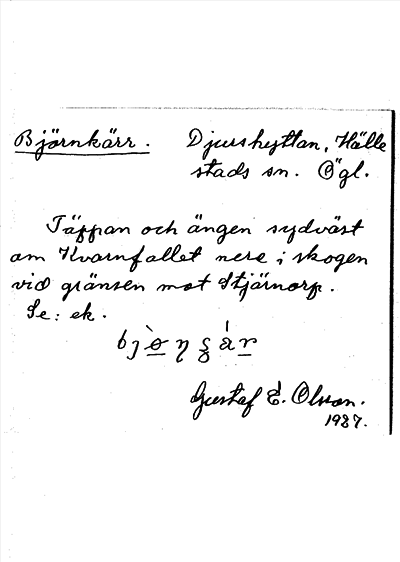 Björnkärr. Djurshyttan, Hälle
stads sn. Ögl.
Täppan och ängen sydväst
om Kvarnfallet nere i skogen
vid gränsen mot Stjärnorp.
Se: ek.
Gustaf E. Olson.
1927.